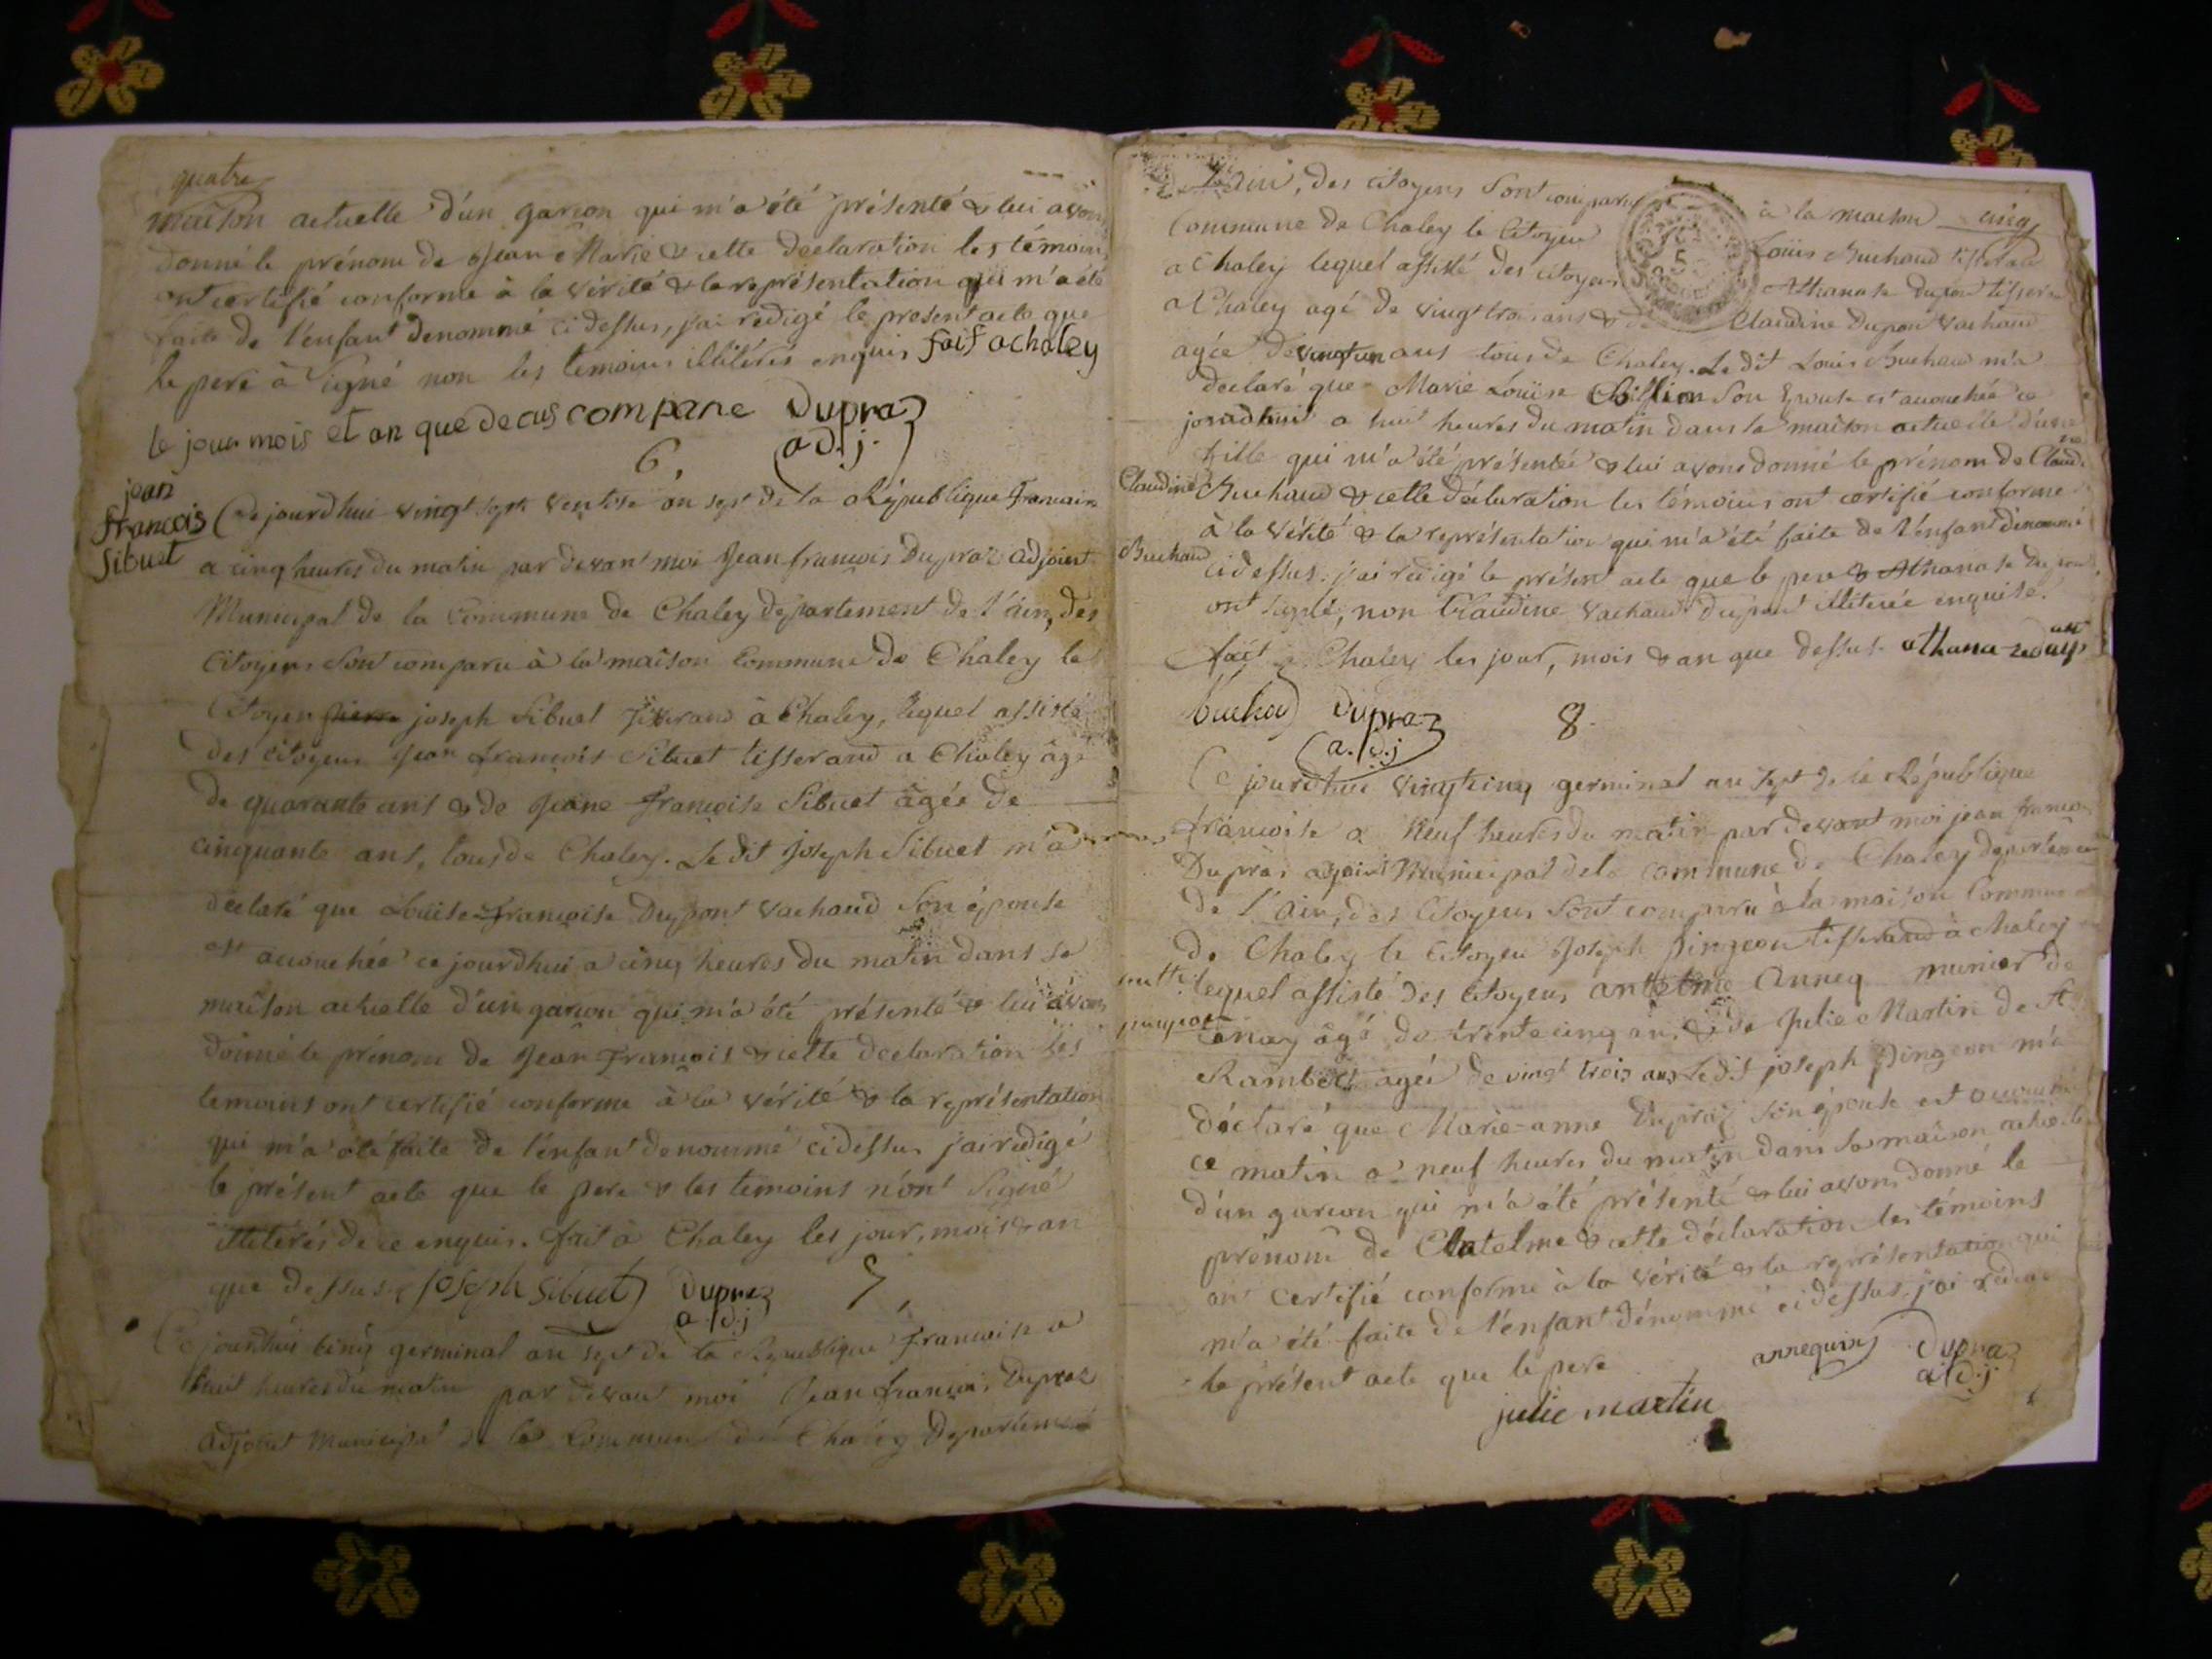 quatre
maison actuelle d'un garcon qui m'a été présenté & lui avons
donné le prénom de Jean Marie & cette declaration les témoins
ont certifié conforme à la vérité & la représentation qui m'a été
faite de l'enfant denommé ci dessus, j'ai redigé le present acte que
le pere à signé non les temoins illitérés enquis fait a chaley
le jour mois et an que decus compare Dupraz
adj.
6.
jean
francois
Sibuet
Ce jourdhui vingt sept ventose an sept de la République francaise
a cinq heures du matin par devant moi Jean francois Dupraz adjoint
Municipal de la Commune de Chaley departement de l'ain, des
Citoyens Sont comparu à la maison Commune de Chaley le
Citoyen pierre joseph Sibuet Tisserand à Chaley, lequel assisté
des citoyens Jean francois Sibuet tisserand a Chaley âgé
de quarante ans & de Jeane francoise Sibuet âgée de
cinquante ans, tous de Chaley. Le dit Joseph Sibuet m'a
déclaré que Louise francoise Dupont vachaud Son épouse
est accouchée ce jourdhui a cinq heures du matin dans sa
maison actuelle d'un garcon qui m'a été présenté & lui avons
donné le prénom de Jean François & cette declaration les
temoins ont certifié conforme à la vérité & la représentation
qui m'a été faite de l'enfant denommé ci dessus j'ai redigé
le présent acte que le pere & les temoins n'ont Signé
illitérés de ce enquis. fait à Chaley les jour, mois & an
que dessus. joseph sibuet Dupraz
a.d.j
7,
Ce jourdhui cinq germinal an sept de la République francoise a
huit heures du matin par devant moi Jean francois Dupraz
adjoint Municipal de la Commune de Chaley Departement
de l'ain, des citoyens Sont comparu à la maison cinq
Commune de Chaley le Citoyen Louis Buchaud tisserand
a Chaley lequel assisté des citoyens Athanase Dupont tisserand
a Chaley agé de vingt trois ans & de Claudine Dupont vachaud
agée de vingt un ans tous de Chaley. Le dit Louis Buchaud m'a
declaré que Marie Louise Son Epouse est accouchée ce
jourdhui a huit heures du matin dans la maison actuelle d'une
fille qui m'a été présentée & lui avons donné le prénom de Claudine
Claudine
Buchaud & cette déclaration les témoins ont certifié conforme
à la vérité & la représentation qui m'a été faite de l'enfant denommé
Buchaud
ci dessus. j'ai redigé le présent acte que le pere & Athanase Dupont
ont signé, non Claudine vachaud Dupont illiterée enquise.
fait a Chaley les jour, mois & an que dessus
Buchaud Dupraz
a.d.j
8.
Ce jourdhui vingt cinq germinal an sept de la République
francoise a neuf heures du matin par devant moi jean francois
Dupras ajoint Municipal dela commune de Chaley departement
de l'ain, des Citoyens Sont comparu à la maison Commune
de Chaley le Citoyen Joseph pingeon tisserand à Chaley
lequel assisté des Citoyens antelme Anneq munier de
pingeon
âgé de trente cinq ans & de Julie Martin de St
Rambert agée de vingt trois ans Le dit joseph pingeon m'a
déclaré que Marie-anne Dupraz Son épouse est accouché
ce matin a neuf heures du matin dans sa maison actuelle
d'un garcon qui m'a été présenté & lui avons donné le
prénom de & cette déclaration les témoins
ont certifié conforme à la vérité & la représentation qui
m'a été faite de l'enfant dénommé ci dessus, j'ai redigé
le présent acte que le pere
Dupraz
a.d.j
julie martin